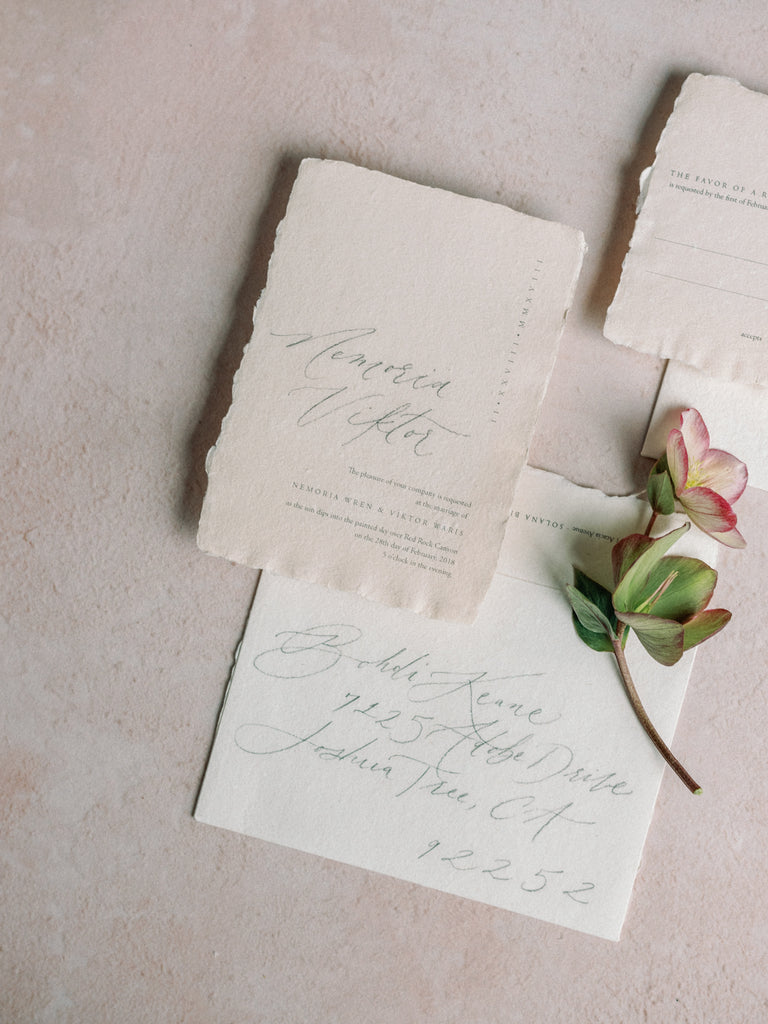 Nemoria
Viktor
II • XXVIII • MMXVIII
The pleasure of your company is requested
at the marriage of
NEMORIA WREN & VIKTOR WARIS
as the sun dips into the painted sky over Red Rock Canyon
on the 28th day of February, 2018
5 o'clock in the evening
THE FAVOR OF A R
is requested by the first of Februa
accepts
Acacia Avenue · SOLANA B
Bohdi Keane
7225 Adobe Drive
Joshua Tree, CA
92252